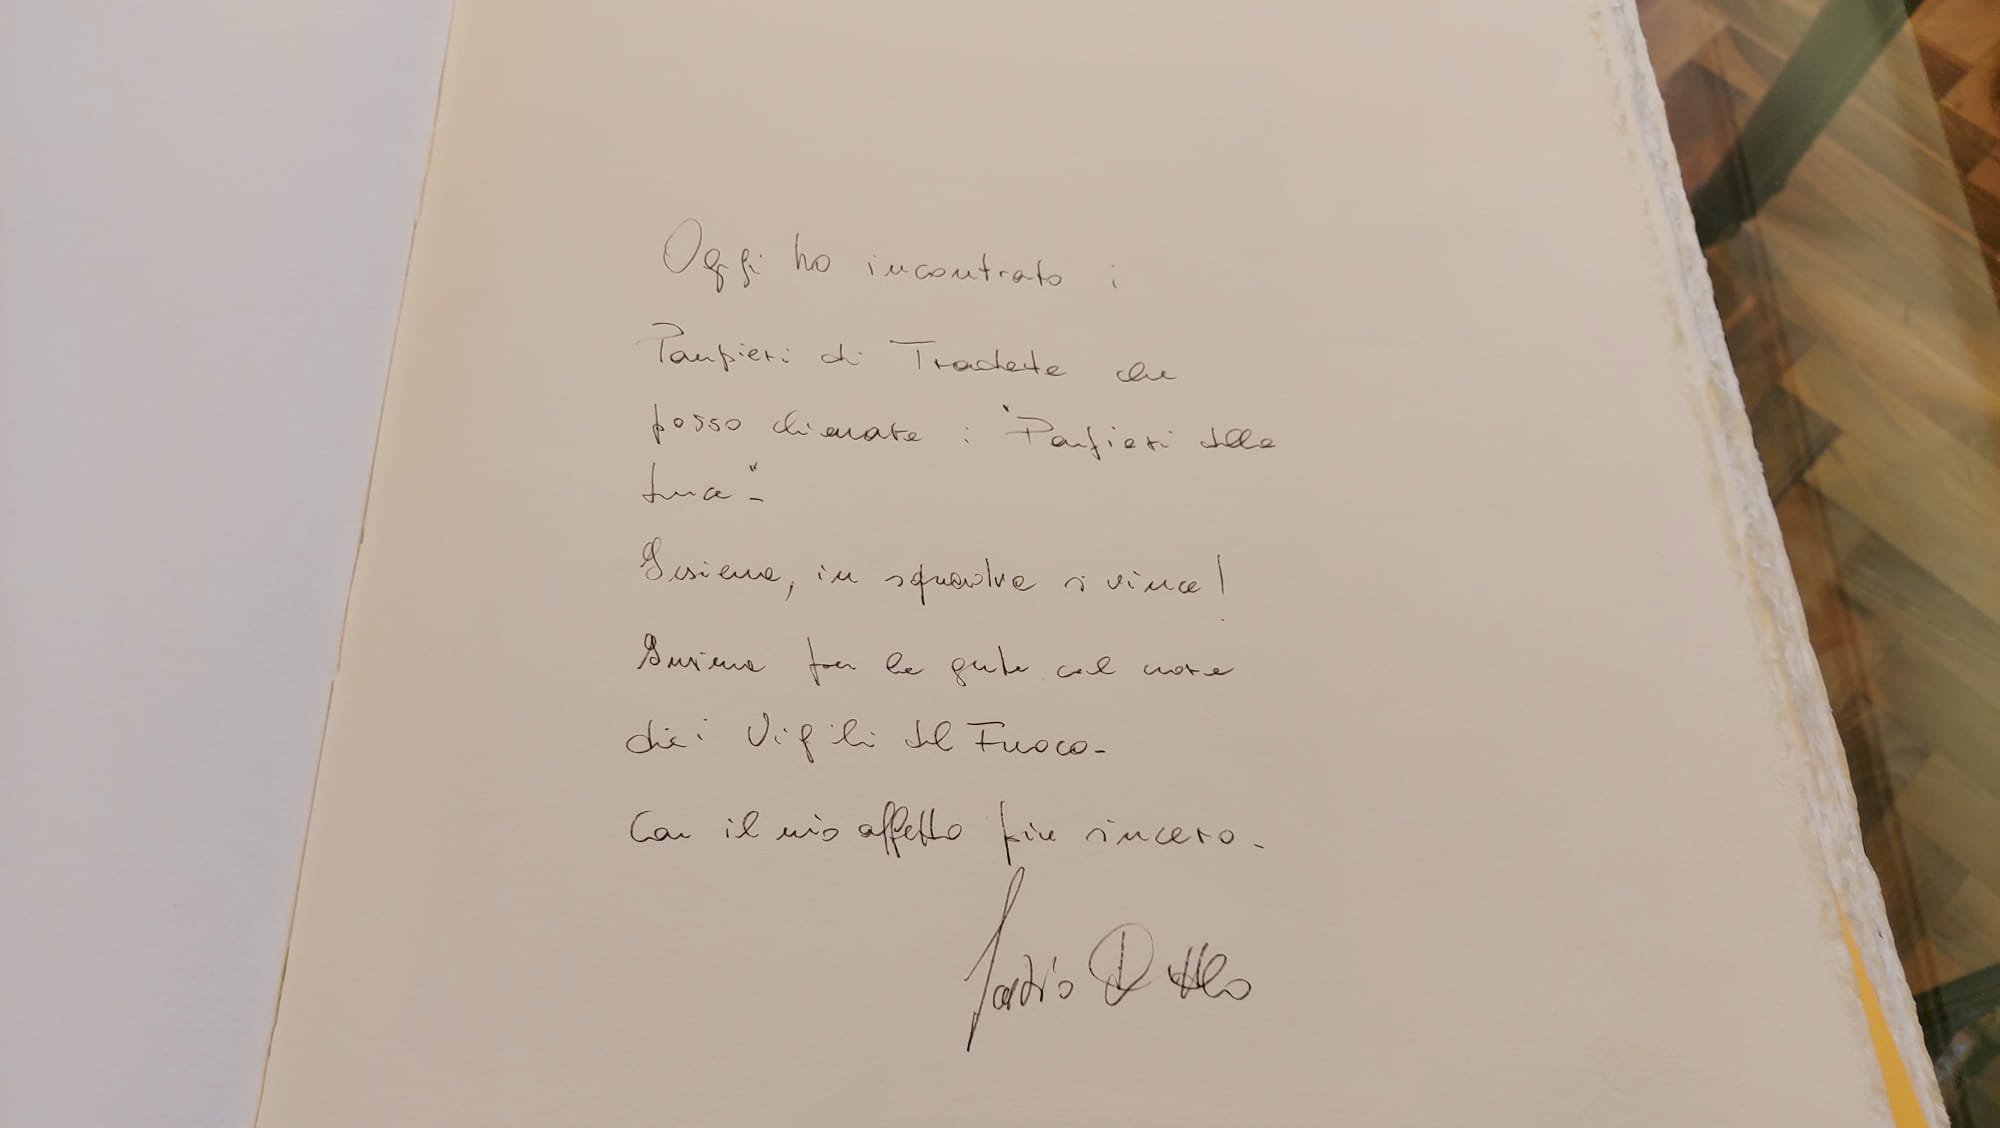 Oggi ho incontrato i
Pompieri di Tradate che
posso chiamare : "Pompieri della
luce"-
Insieme, in squadra si vince!
Insieme per la gente col cuore
dei Vigili del Fuoco-
Con il mio affetto più sincero-